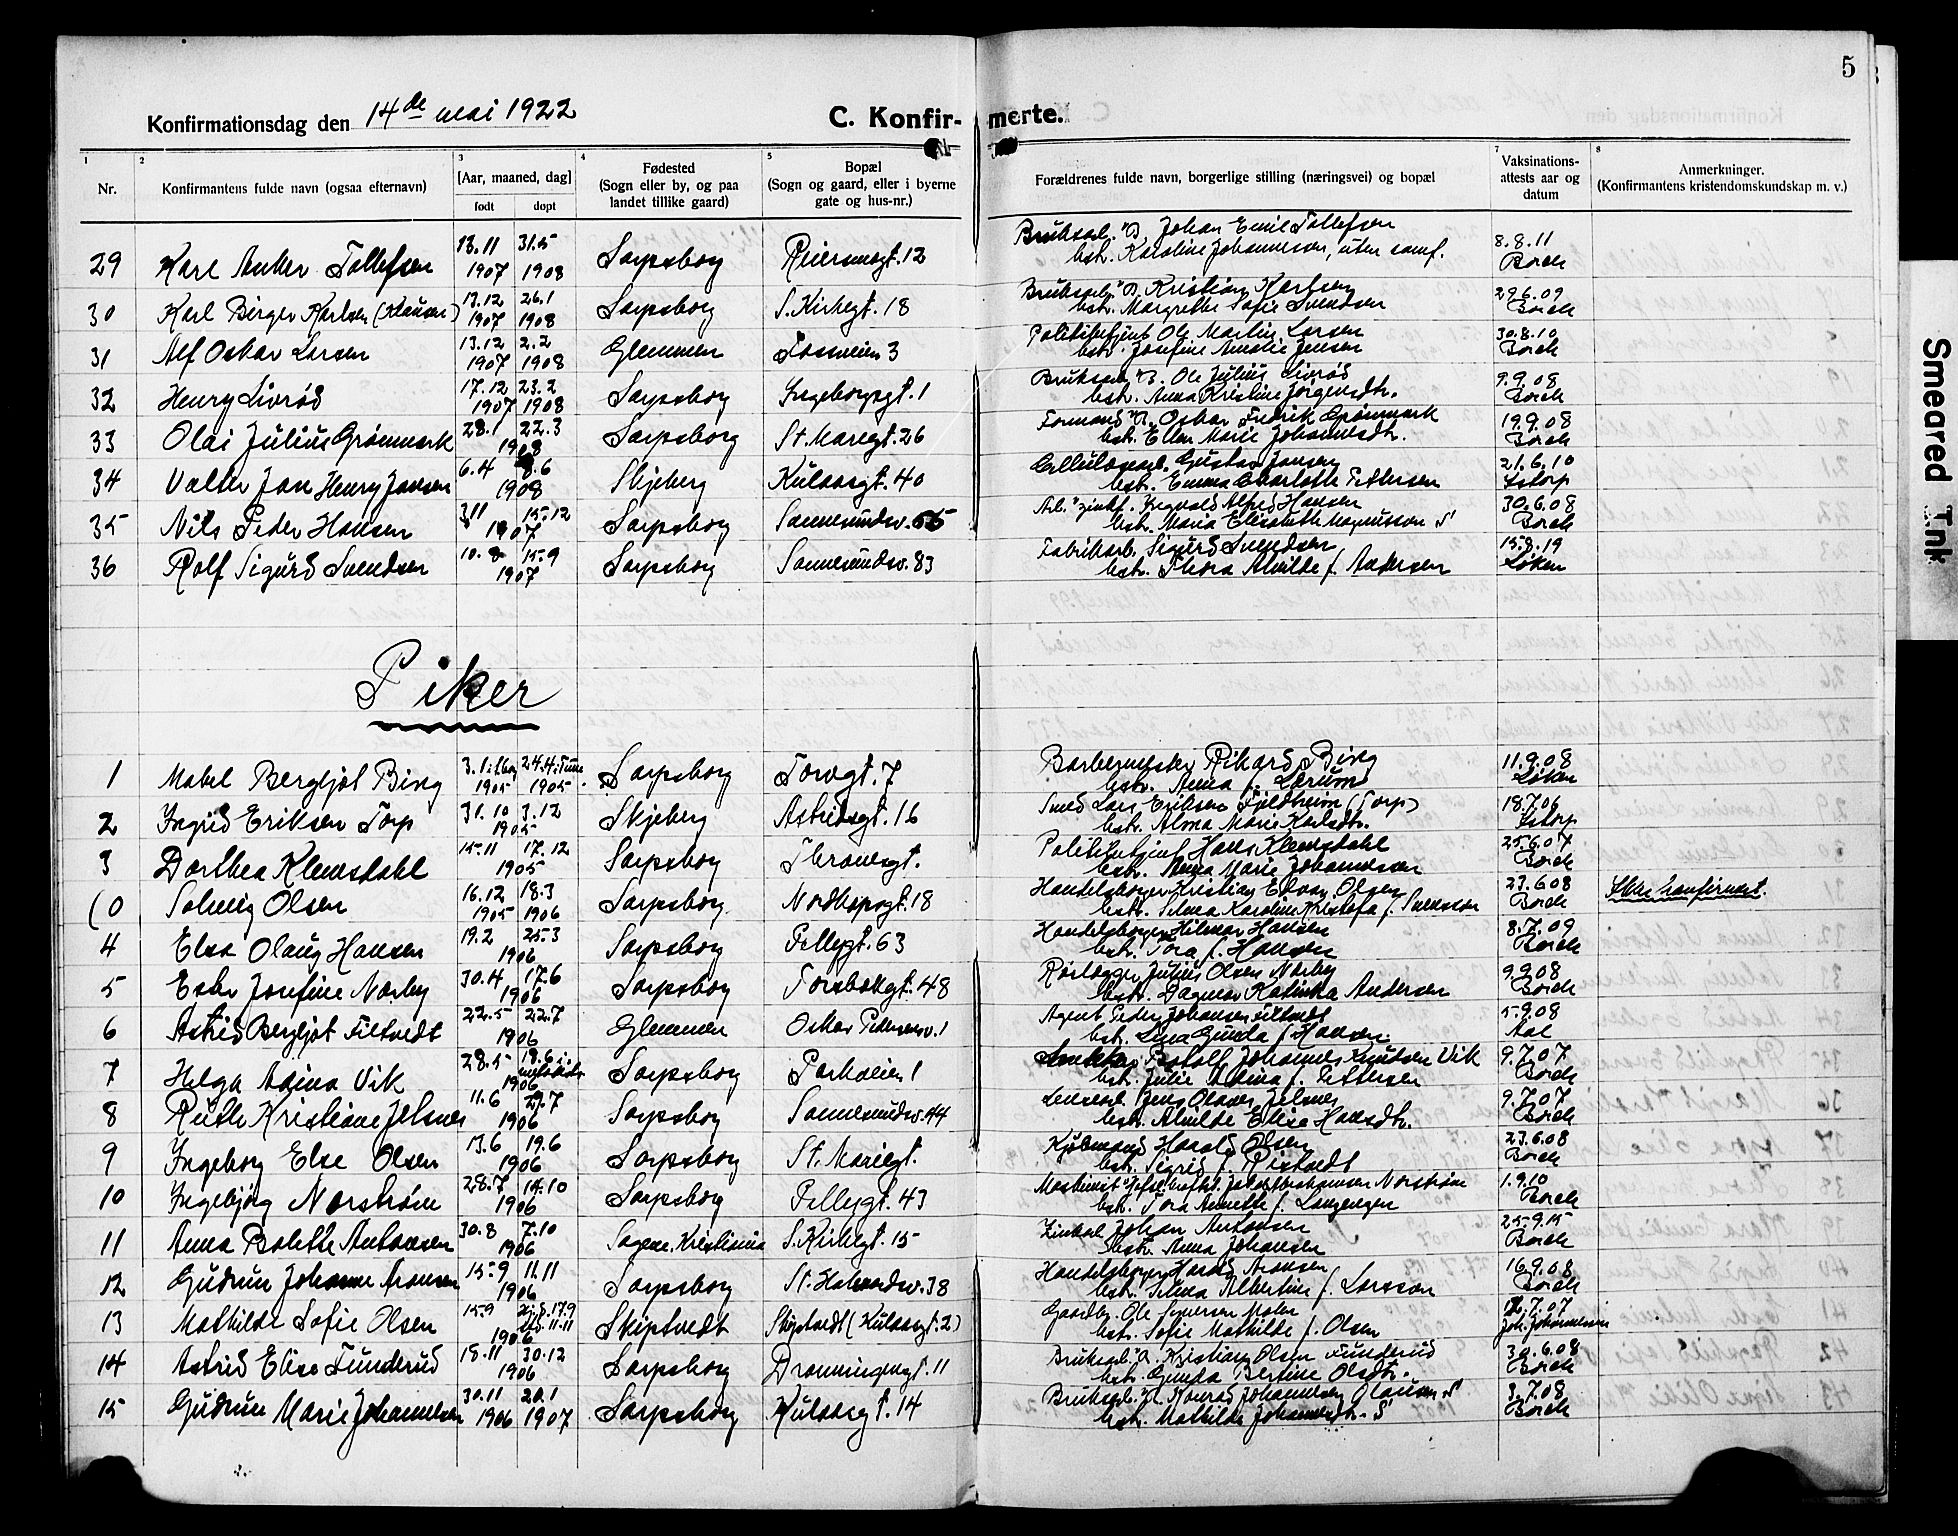 5
Konfirmationsdag den 14de mai 1922
C. Konfirmerte.
1 2 3 4 5 7 8
Nr. Konfirmantens fulde navn (ogsaa efternavn) [Aar, maaned, dag] født døpt Fødested (Sogn eller by, og paa landet tillike gaard) Bopæl (Sogn og gaard, eller i byerne gate og hus-nr.) Forældrenes fulde navn, borgerlige stilling (næringsvei) og bopæl Vaksinations-attests aar og datum Anmerkninger. (Konfirmantens kristendomskundskap m. v.)
29 Karl Anker Tollefsen 13.11 1907 31.5 1908 Sarpsborg 12 Bruksarb. Johan Emil Tollefsen hstr. Karoline Johannesen, uten samf. 8.8.11 Borch
30 Karl Birger Karlsen (Klausen) 13.12 1907 26.1 1908 Sarpsborg S. Kirkegt. 18 Bruksarb. Kristian Karlsen hstr. Margrethe Sofie Svendsen 29.6.09 Borch
31 Alf Oskar Larsen 13.12 1907 2.2 1908 Glemmen Fossveien 3 Politibetjent Ole Martin Larsen hstr. Josefine Amalie Jensen 30.8.10 Borch
32 Henry Livrød 17.12 1907 23.2 1908 Sarpsborg Ingeborgsgt. 1 Bruksarb. Ole Julius Livrød hstr. Anna Kristine Jörgensdtr. 9.9.08 Borch
33 Olai Julius Grønmark 28.1 22.3 1908 Sarpsborg St. Mariegt. 26 Formand Oskar Fredrik Grønmark hstr. Ellen Marie Johannesdtr. 19.9.08 Borch
34 Valter Jan Henry Jansen 6.4 8.6 1908 Skjeberg Kulaasgt. 40 Cellulosearb. Gustav Jansen hstr. Emma Charlotte Pettersen 21.6.10 Istorp
35 Nils Peder Hansen 3.11 15.12 1907 Sarpsborg Sannesundsv. 65 Arb. Ingvald Alfred Hansen hstr. Maria Elisabeth Magnusson S 30.6.08 Borch
36 Rolf Sigurd Svendsen 10.8 15.9 1907 Sarpsborg Sannesundsv. 83 Fabrikarb. Sigurd Svendsen hstr. Thora Alvilde f. Andersen 15.8.19 Løken
Piker
1 Mabel Bergljot Bing 3.1 1905 24.4 i Tune 1905 Sarpsborg Torvgt. 7 Barbermester Rikard Bing hstr. Anna f. Lerum 11.9.08 Løken
2 Ingrid Eriksen Torp 31.10 3.12 1905 Skjeberg Astridsgt. 16 Smed Lars Eriksen Fjeldheim (Torp) hstr. Alma Marie Karlsdtr. 18.7.06 Istorp
3 Dorthea Klemsdahl 15.11 17.12 1905 Sarpsborg Thranesgt. Politibetjent Hans Klemsdahl hstr. Anna Marie Johannessen 25.6.07 Borch
(0 Solveig Olsen 16.12 1905 18.3 1906 Sarpsborg Nordbyesgt. 18 Handelsborger Kristian Edvar Olsen hstr. Selma Karoline Kristofa f. Svensson 23.6.08 Borch Ikke konfirmert.
4 Elsa Olaug Hansen 19.2 25.3 1906 Sarpsborg Pellygt. 63 Handelsborger Hilmar Hansen hstr. Tora f. Hansen 8.7.09 Borch
5 Ester Josefine Norby 30.4 17.6 1906 Sarpsborg Torsbekkgt. 48 Rørlægger Julius Olsen Norby hstr. Dagmar Katinka Andersen 9.9.08 Borch
6 Astrid Bergljot Filtvedt 22.5 22.7 1906 Glemmen Oskar Pedersensv. 1 Agent Peder Johansen Filtvedt hstr. Lina Gunda f. Hansen 5.9.08 Aal
7 Helga Adina Vik 28.5 18.6 1906 Sarpsborg Parkveien 1 Johannes Knutsen Vik hstr. Julie Adina f. Pettersen 9.7.07 Borch
8 Ruth Kristiane Jelsnes 11.6 29.7 1906 Sarpsborg Sannesundsv. 44 Jens Olaves Jelsnes hstr. Alvilde Elise Hansdtr. 9.7.07 Borch
9 Ingeborg Else Olsen 13.6 19.6 1906 Sarpsborg St. Mariegt. Kjøbmand Harald Olsen hstr. Sigrid f. Ristvedt 23.6.08 Borch
10 Ingebjörg Norstrøm 28.7 14.10 1906 Sarpsborg Pellygt. 43 Maskinist Jakob Norstrøm hstr. Tora Annette f. Langengen 1.9.10 Borch
11 Anna Bolette Antonsen 30.8 7.10 1906 Sagene, Kristiania S. Kirkegt. 15 Johan Antonsen hstr. Anna Johansen 25.9.15 Borch
12 Gudrun Johanne Aronsen 15.9 11.11 1906 Sarpsborg St. Halvardsv. 38 Handelsborger Harald Aronsen hstr. Selma Albertine f. Larsson 16.9.08 Borch
13 Mathilde Sofie Olsen 15.9 17.9 11.11 1906 Skiptvedt Skiptvedt (Kulaasgt. 2) Gaardbr. Ole Syversen Moler hstr. Sofie Mathilde f. Olsen 12.7.07 Joh. Johannessen
14 Astrid Elise Funderud 18.11 30.12 1906 Sarpsborg Dronningensgt. 11 Bruksarb. Kristian Olsen Funderud hstr. Gunda Bertine Olsdtr. 30.6.08 Borch
15 Gudrun Marie Johannesen 30.11 1906 20.1 1907 Sarpsborg Kulaasgt. 14 Bruksarb. Konrad Johannesen Olausen S hstr. Mathilde Johannesdtr. S 3.7.08 Borch
Smeared Ink